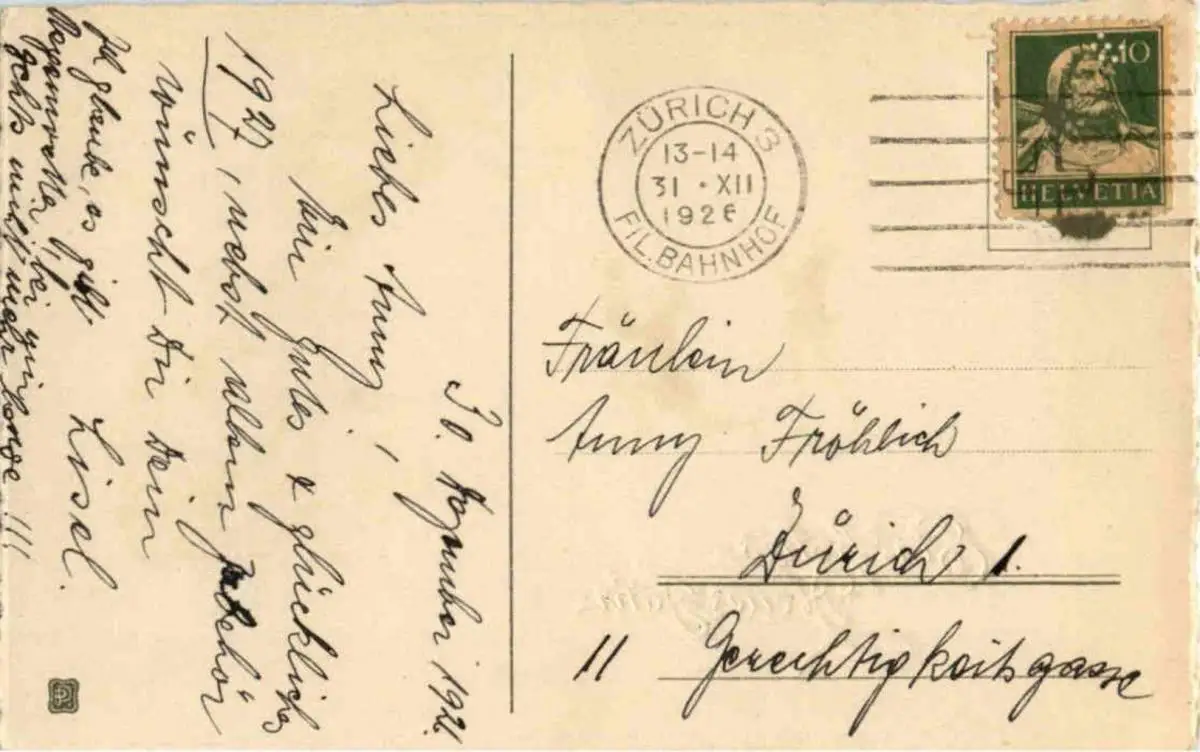 30. Dezember 1926.
Liebes Anny,
Ein gutes & glückliches
1927, nebst allem Zubehör
wünscht Dir Dein
Lisel.
Ich glaube, es gibt
bei
gohts nümet meh lande!!!
ZÜRICH 3
13-14
31 · XII
1926
FIL. BAHNHOF
10
HELVETIA
Fräulein
Anny Fröhlich
Zürich 1.
11 Gerechtigkeitsgasse